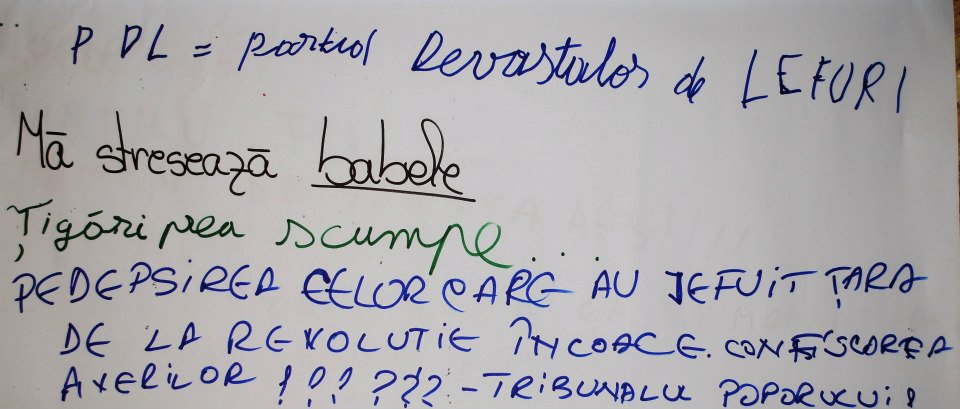 PDL = partid Devastator de LEFURI
Mă stresează babele
Țigări prea scumpe...
PEDEPSIREA CELOR CARE AU JEFUIT ȚARA
DE LA REVOLUTIE ÎNCOACE. CONFISCAREA
AVERILOR !!! ??? - TRIBUNALUL POPORULUI!